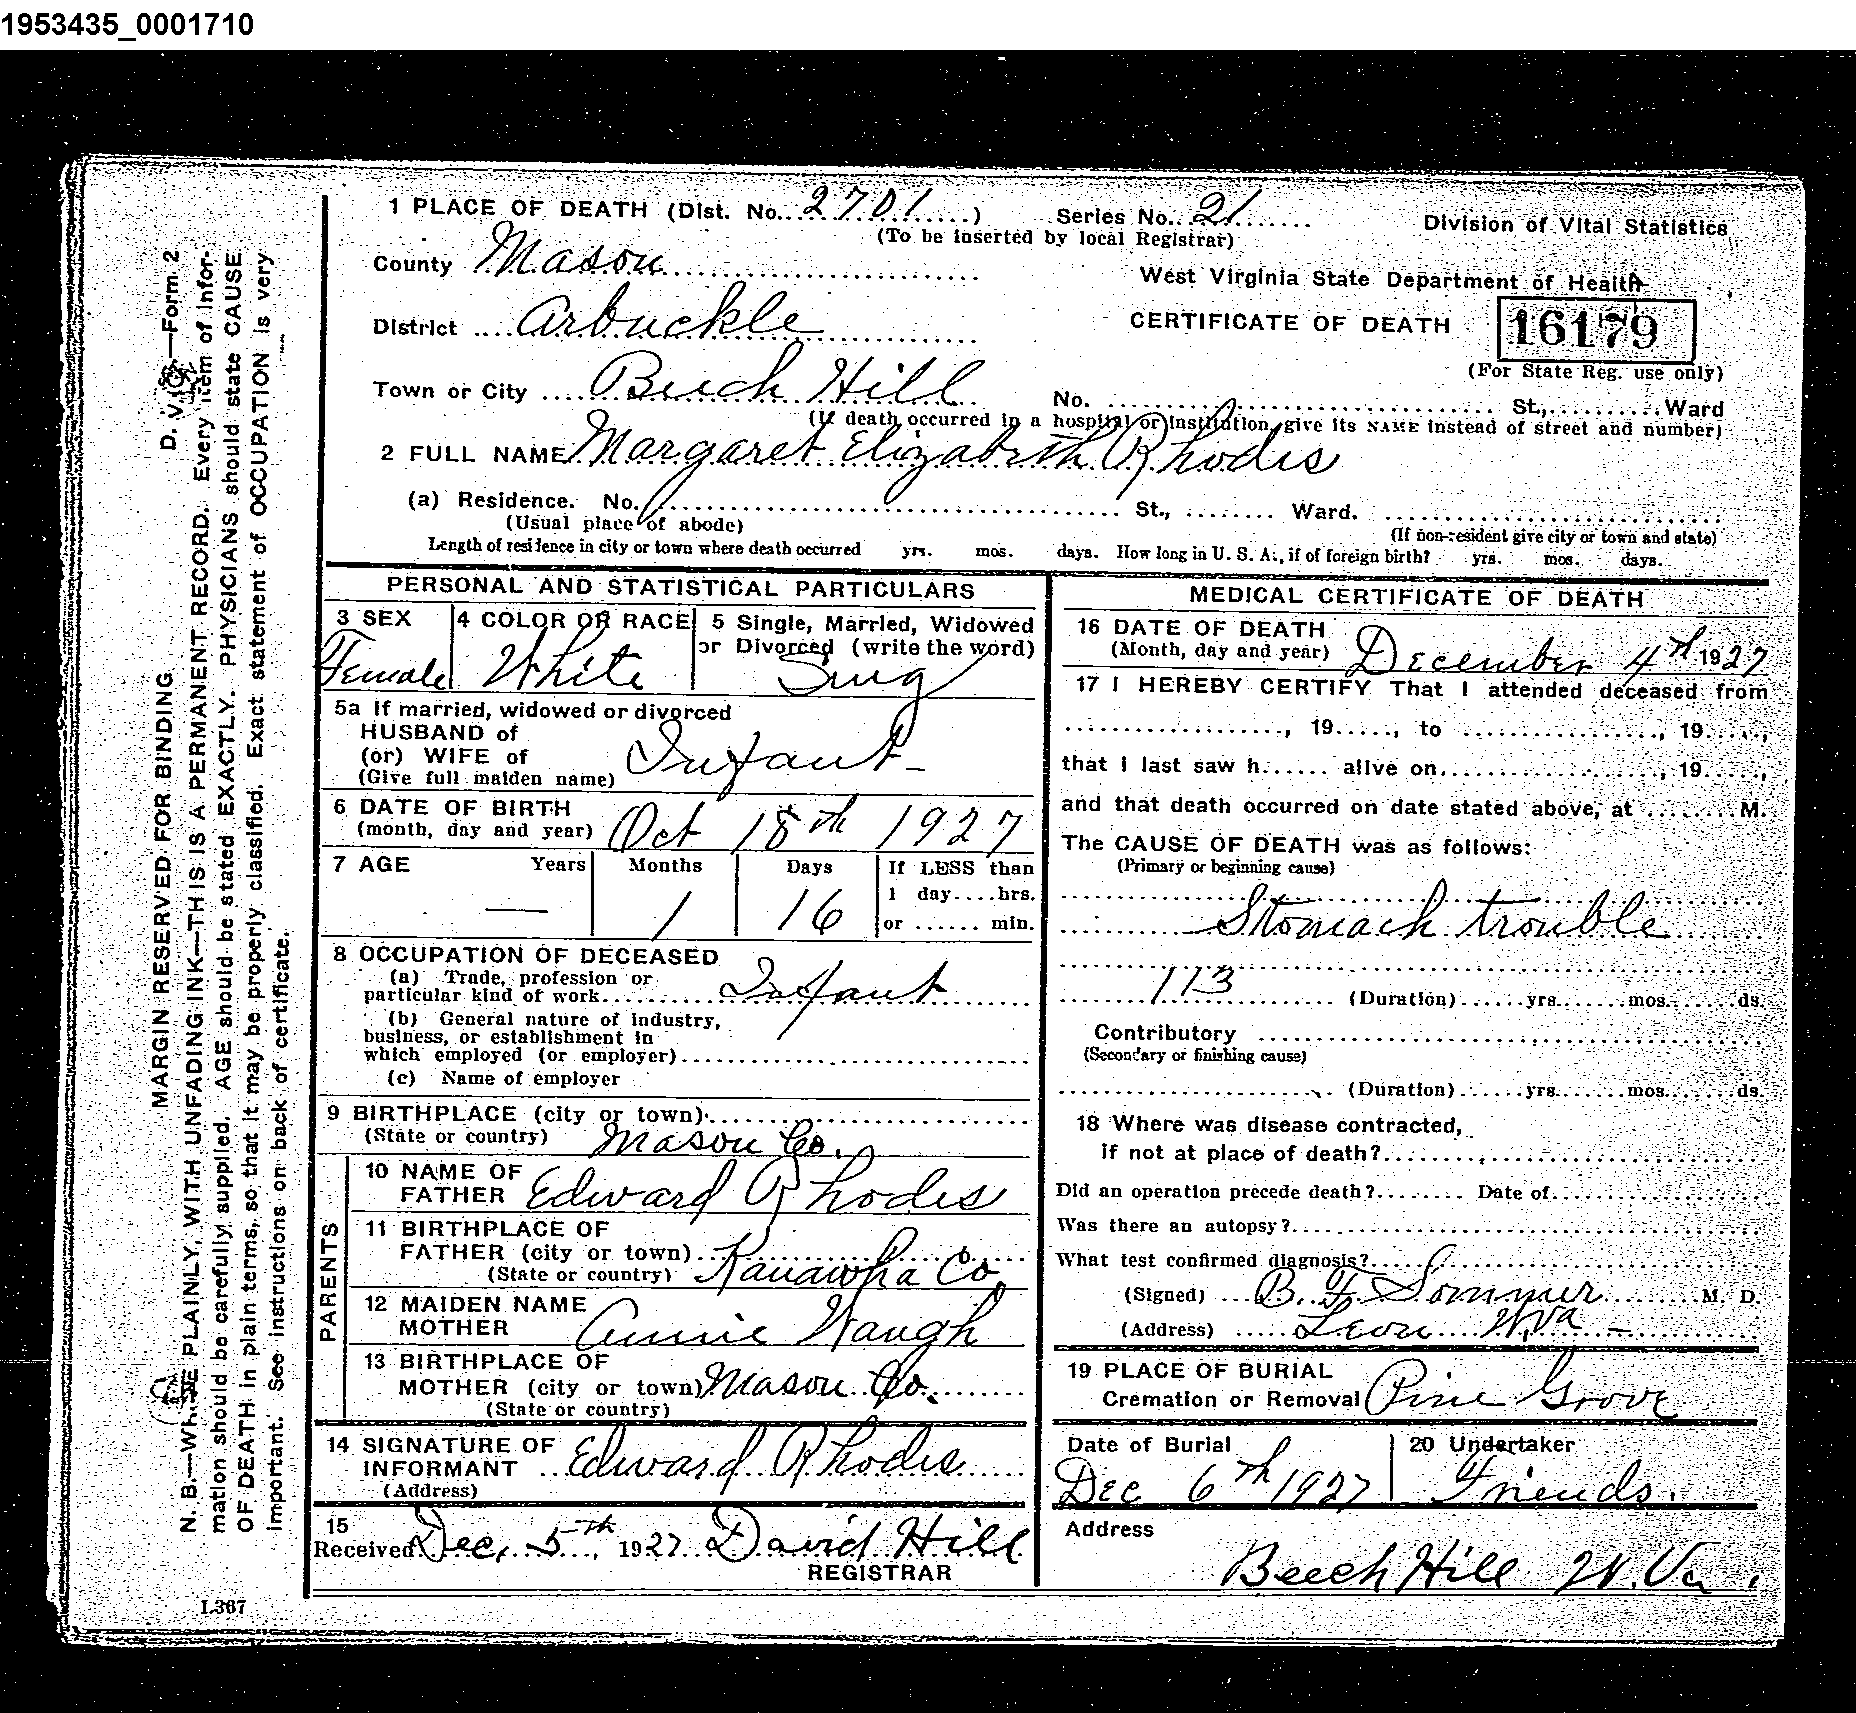 1953435_0001710
1 PLACE OF DEATH (Dist. No. 2701) Series No. 21
(To be inserted by local Registrar)
Division of Vital Statistics
County Mason
West Virginia State Department of Health
District Arbuckle
CERTIFICATE OF DEATH
16179
(For State Reg. use only)
Town or City Beech Hill No. St., Ward
(If death occurred in a hospital or institution, give its NAME instead of street and number)
2 FULL NAME Margaret Elizabeth Rhodes
(a) Residence. No. St., Ward.
(Usual place of abode) (If non-resident give city or town and state)
Length of residence in city or town where death occurred yrs. mos. days. How long in U. S. A., if of foreign birth? yrs. mos. days.
PERSONAL AND STATISTICAL PARTICULARS
3 SEX
Female
4 COLOR OR RACE
White
5 Single, Married, Widowed
or Divorced (write the word)
Sing
5a If married, widowed or divorced
HUSBAND of
(or) WIFE of
(Give full maiden name)
Infant
6 DATE OF BIRTH
(month, day and year) Oct 18th 1927
7 AGE Years Months Days If LESS than
1 day....hrs.
or ...... min.
— 1 16
8 OCCUPATION OF DECEASED
(a) Trade, profession or
particular kind of work Infant
(b) General nature of industry,
business, or establishment in
which employed (or employer)
(c) Name of employer
9 BIRTHPLACE (city or town)
(State or country) Mason Co.
PARENTS
10 NAME OF
FATHER Edward Rhodes
11 BIRTHPLACE OF
FATHER (city or town)
(State or country) Kanawha Co
12 MAIDEN NAME
MOTHER Annie Waugh
13 BIRTHPLACE OF
MOTHER (city or town) Mason Co.
(State or country)
14 SIGNATURE OF
INFORMANT Edward Rhodes
(Address)
15
Received Dec, 5th, 1927 David Hill
REGISTRAR
MEDICAL CERTIFICATE OF DEATH
16 DATE OF DEATH
(Month, day and year) December 4th 1927
17 I HEREBY CERTIFY That I attended deceased from
, 19....., to , 19.....,
that I last saw h...... alive on , 19.....,
and that death occurred on date stated above, at ........M.
The CAUSE OF DEATH was as follows:
(Primary or beginning cause)
Stomach trouble
113 (Duration) yrs. mos. ds.
Contributory
(Secondary or finishing cause)
(Duration) yrs. mos. ds.
18 Where was disease contracted,
if not at place of death?
Did an operation precede death? Date of
Was there an autopsy?
What test confirmed diagnosis?
(Signed) B. F. Sommer M. D.
(Address) Leon W,Va
19 PLACE OF BURIAL
Cremation or Removal Pine Grove
Date of Burial
Dec 6th 1927
20 Undertaker
Friends.
Address
Beech Hill W.Va.
MARGIN RESERVED FOR BINDING D. V. S.—Form 2
N. B.—WRITE PLAINLY, WITH UNFADING INK—THIS IS A PERMANENT RECORD. Every item of infor-
mation should be carefully supplied. AGE should be stated EXACTLY. PHYSICIANS should state CAUSE
OF DEATH in plain terms, so that it may be properly classified. Exact statement of OCCUPATION is very
important. See instructions on back of certificate.
L367